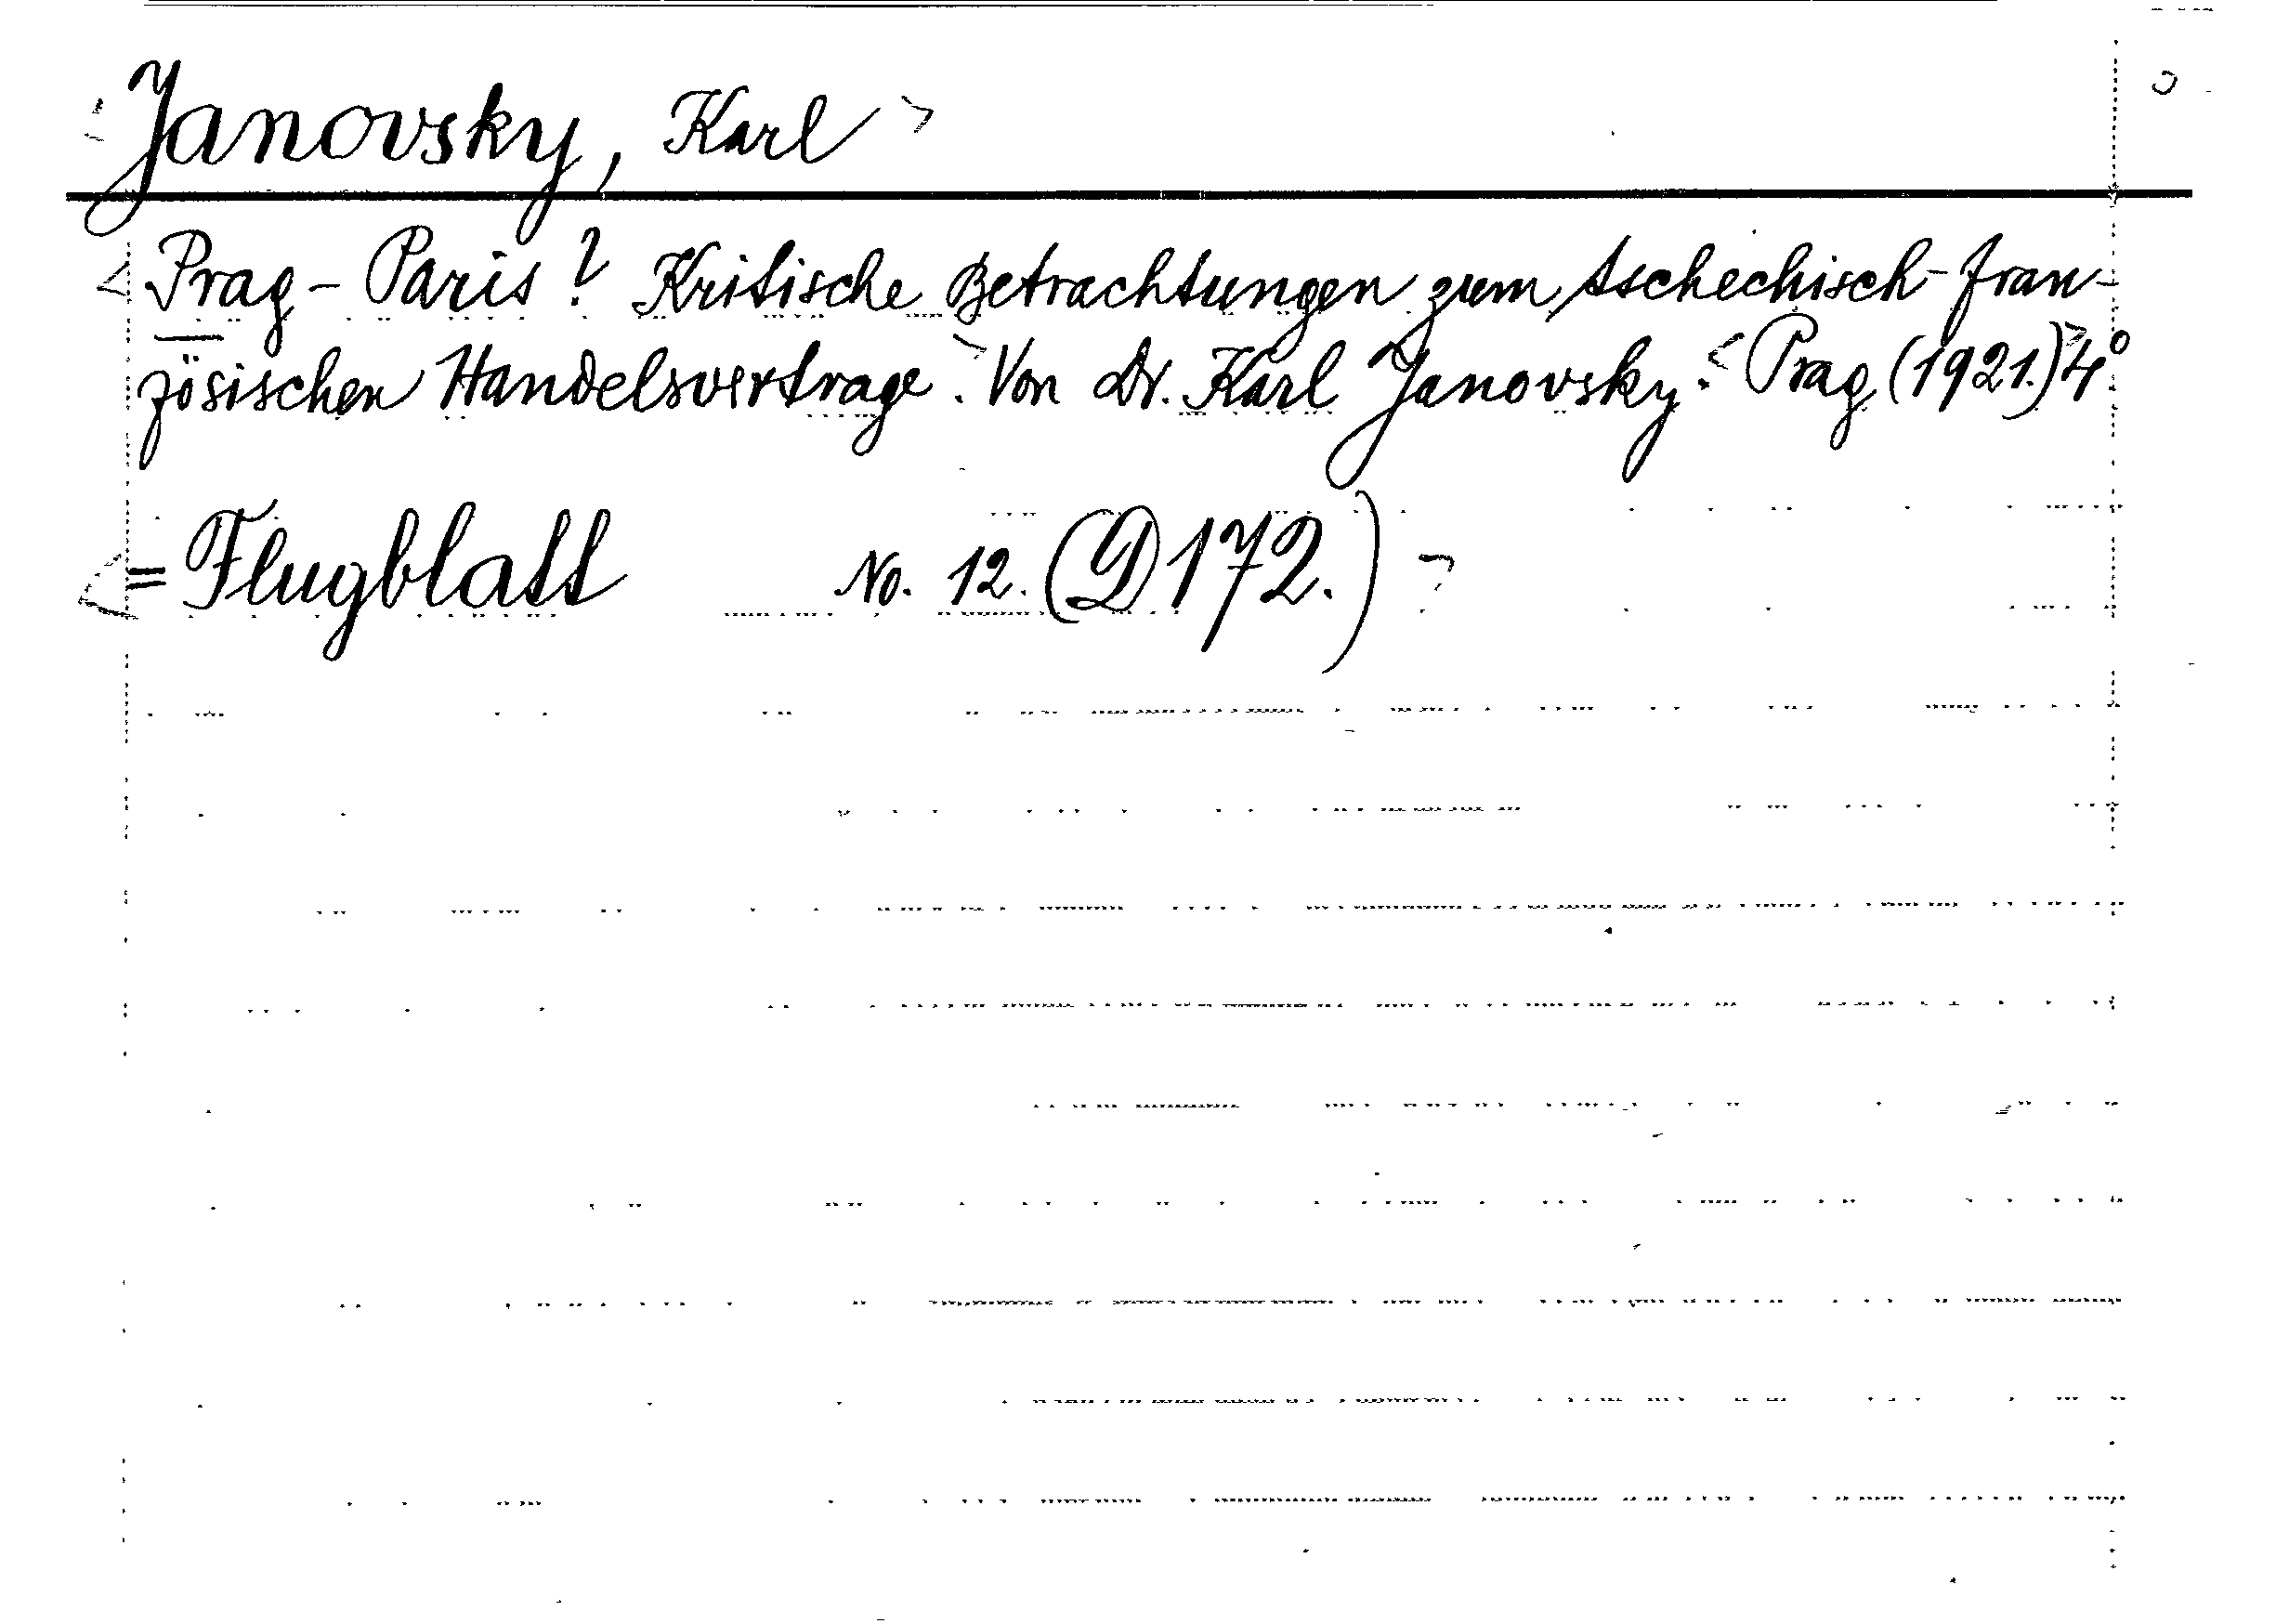 <Janovsky, Karl>
<Prag - Paris? Kritische Betrachtungen zum tschechisch-fran-
zösischen Handelsvertrage>. Von Dr. Karl Janovsky. <Prag (1921.)> 4°
<= Flugblatt No. 12. (D172.)>